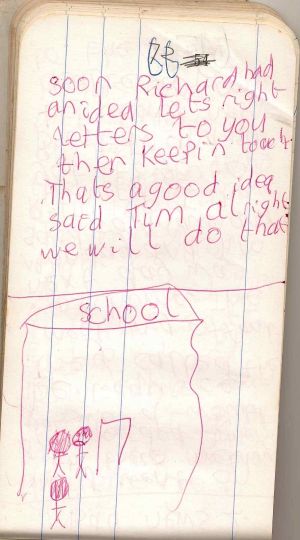 soon Richard had
an idea lets right
Letters to you
then Keep in touch
Thats a good idea
said Tim alright
we will do that
school